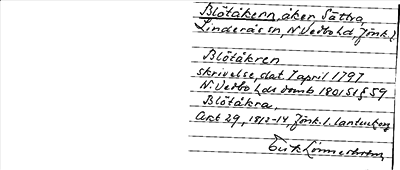 Blötåkern, åker Sättra,
Linderås sn, N. Vedbo hd, Jönk. l
Blötåkren
skrivelse, dat 7 april 1797
N. Vedbo hds domb 1801 51 § 59
Blötåkra,
Akt 29, 1812-14, Jönk. l. lantm.k
Erik Lönnerholm